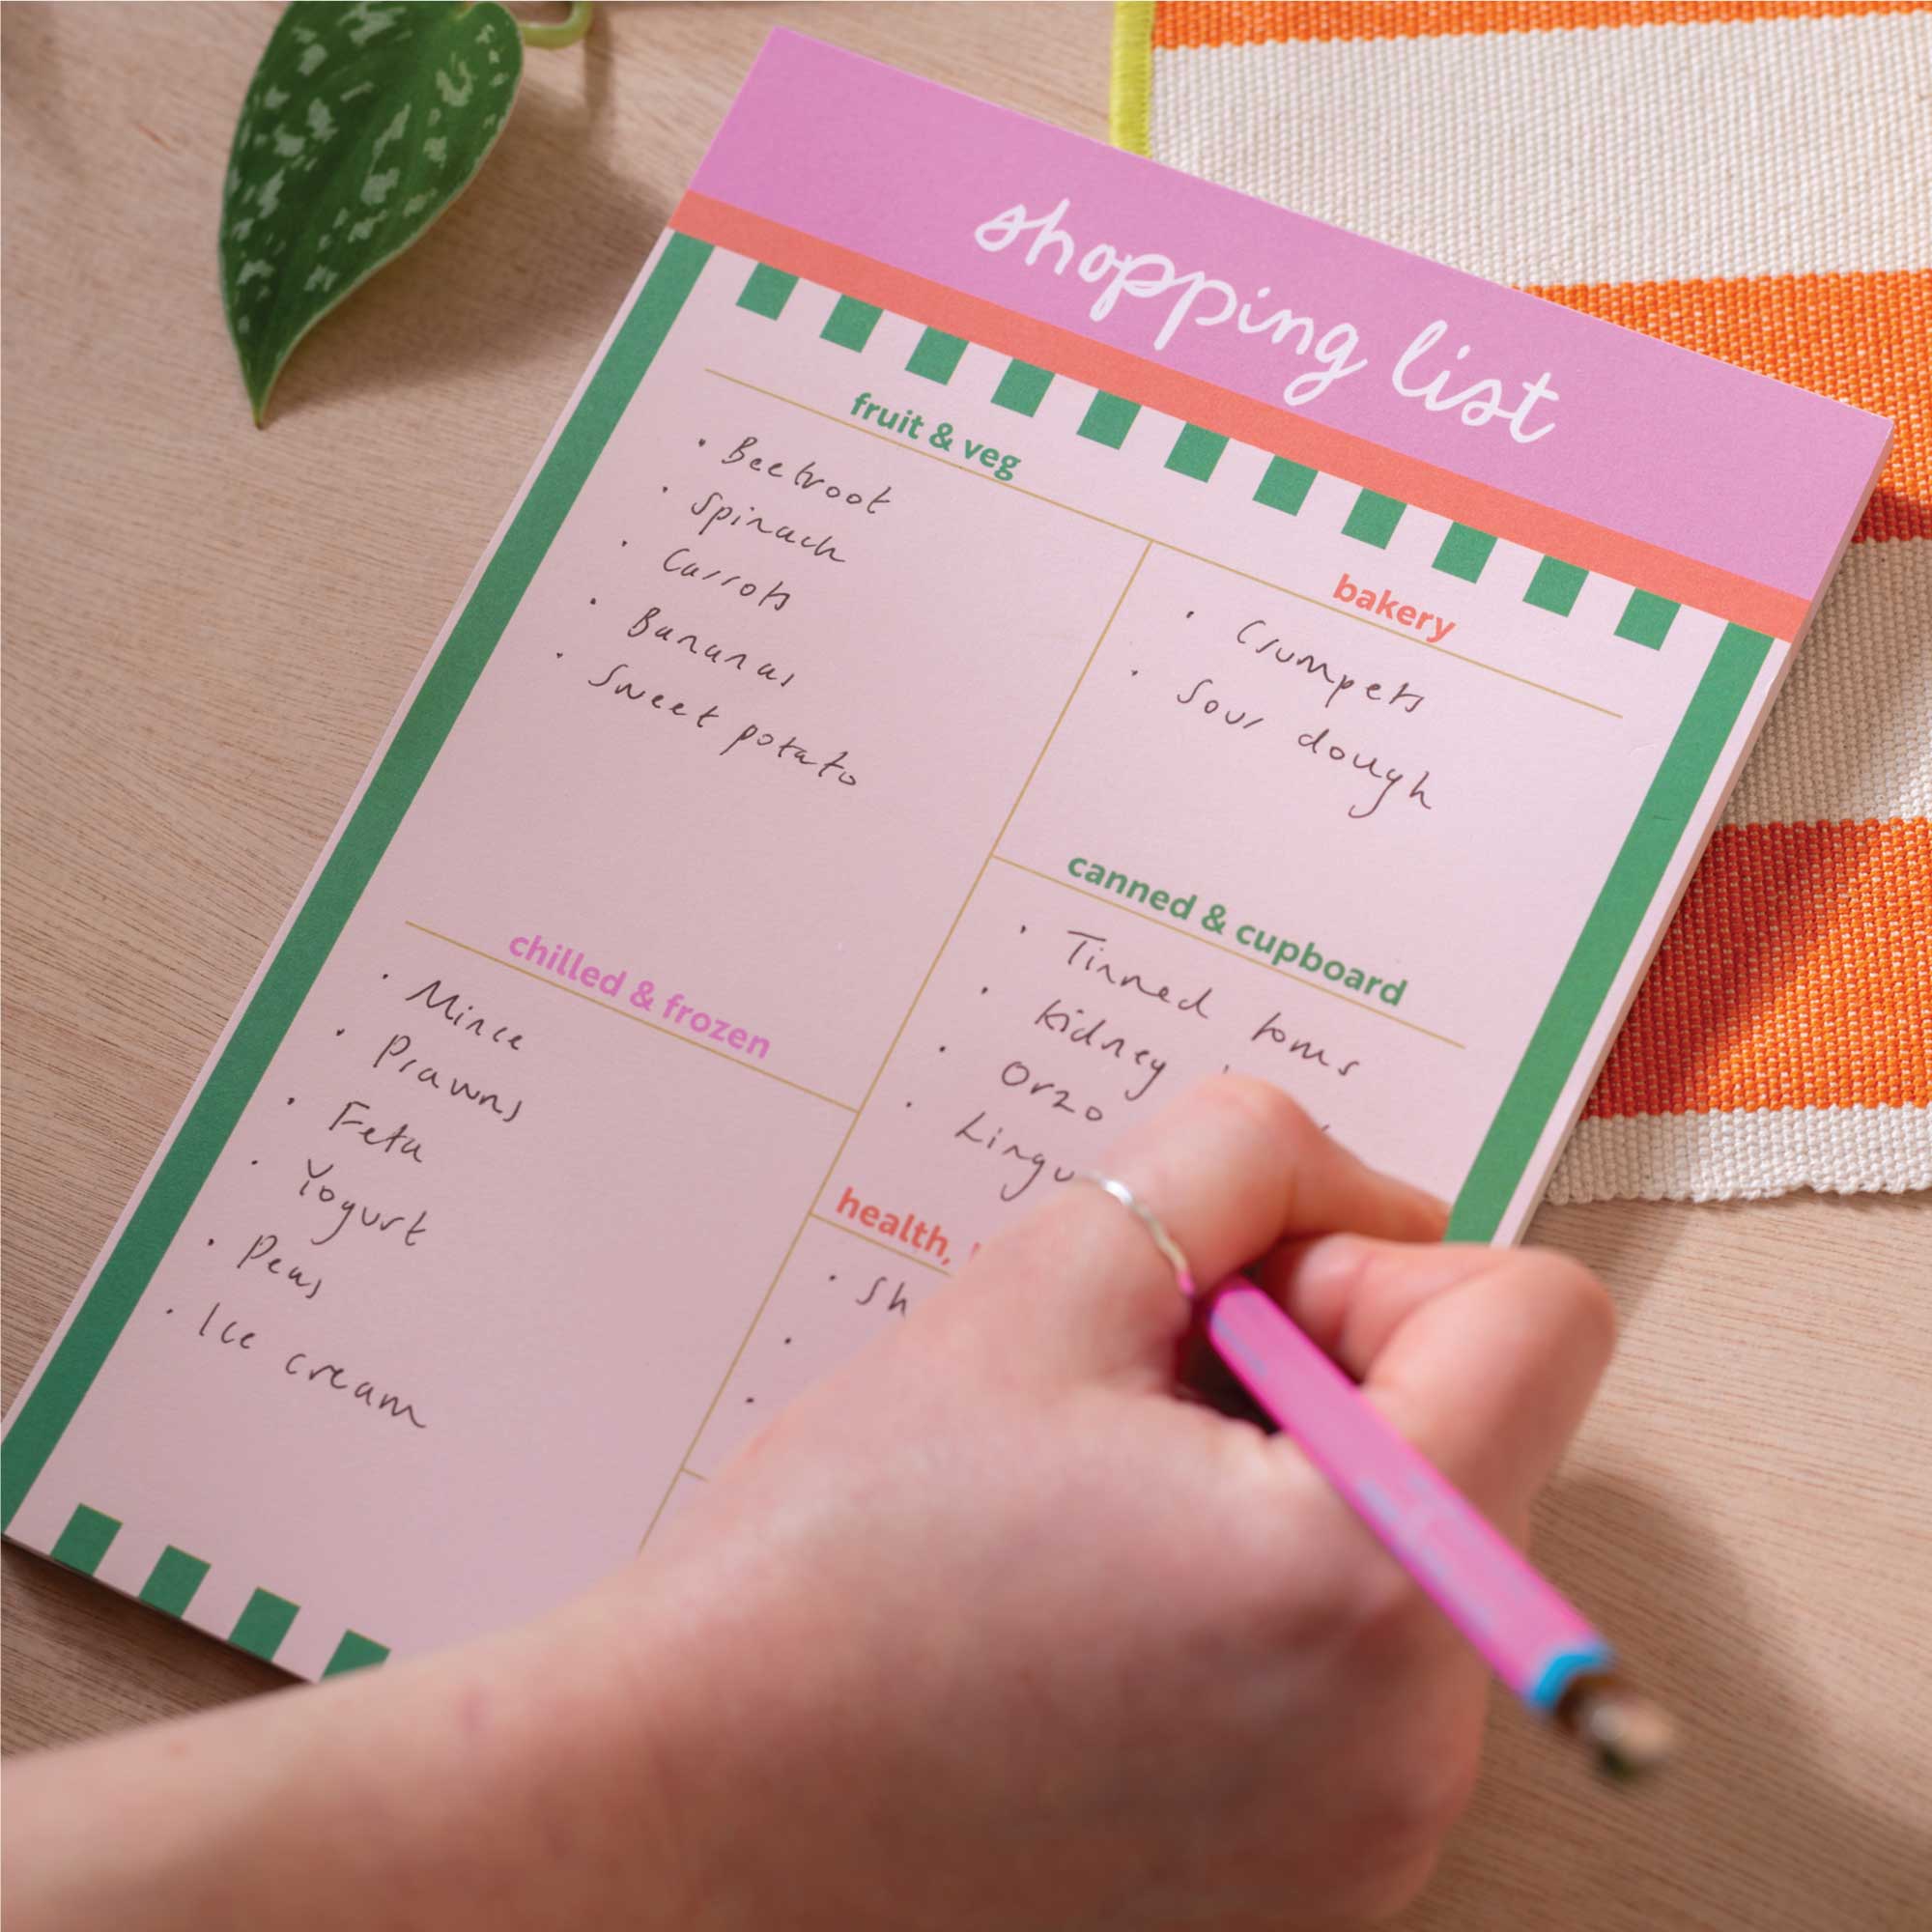 shopping list
fruit & veg
· Beetroot
· Spinach
· Carrots
· Bananas
· Sweet potato
bakery
· Crumpets
· Sour dough
chilled & frozen
· Mince
· Prawns
· Feta
· Yogurt
· Peas
· Ice cream
canned & cupboard
· Tinned toms
· Kidney
· Orzo
·
health,
·
·
·